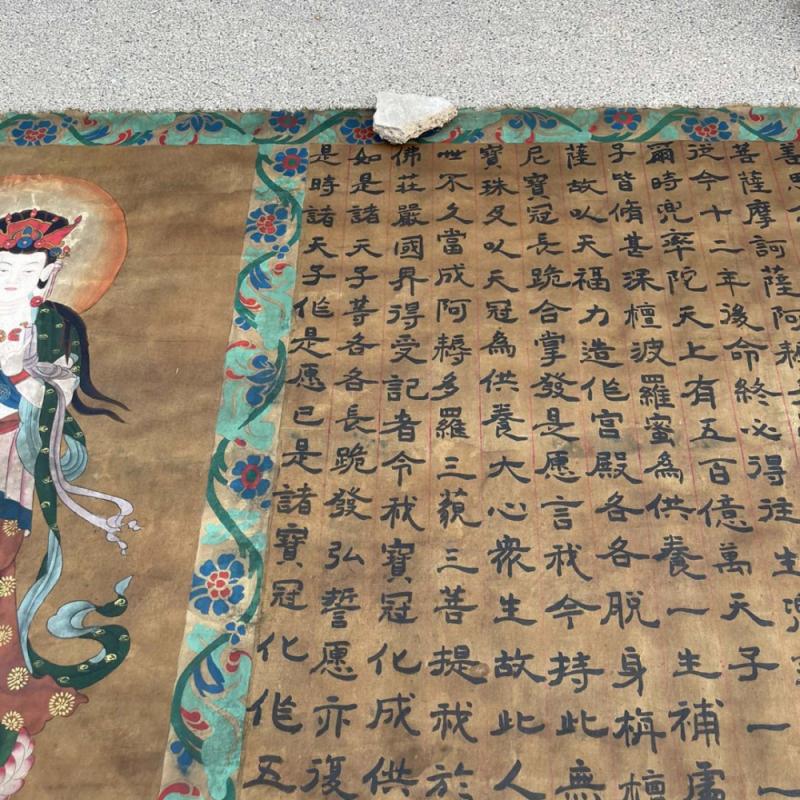 善思
菩薩摩訶薩阿耨
從今十二年後命終必得往生兜
爾時兜率陀天上有五百億萬天子一一
子皆脩甚深檀波羅蜜為供養一生補處
薩故以天福力造作宮殿各各脫身栴檀
尼寶冠長跪合掌發是愿言我今持此無
寶珠及以天冠為供養大心衆生故此人
世不久當成阿耨多羅三藐三菩提我於
佛莊嚴國界得受記者令我寶冠化成供
如是諸天子等各各長跪發弘誓愿亦復
是時諸天子作是愿已是諸寶冠化作五